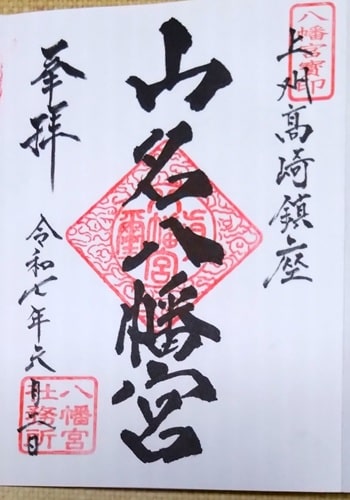 八幡宮寶印
上州高崎鎮座
山名八幡宮
奉拝
令和七年六月日
八幡宮
社務所